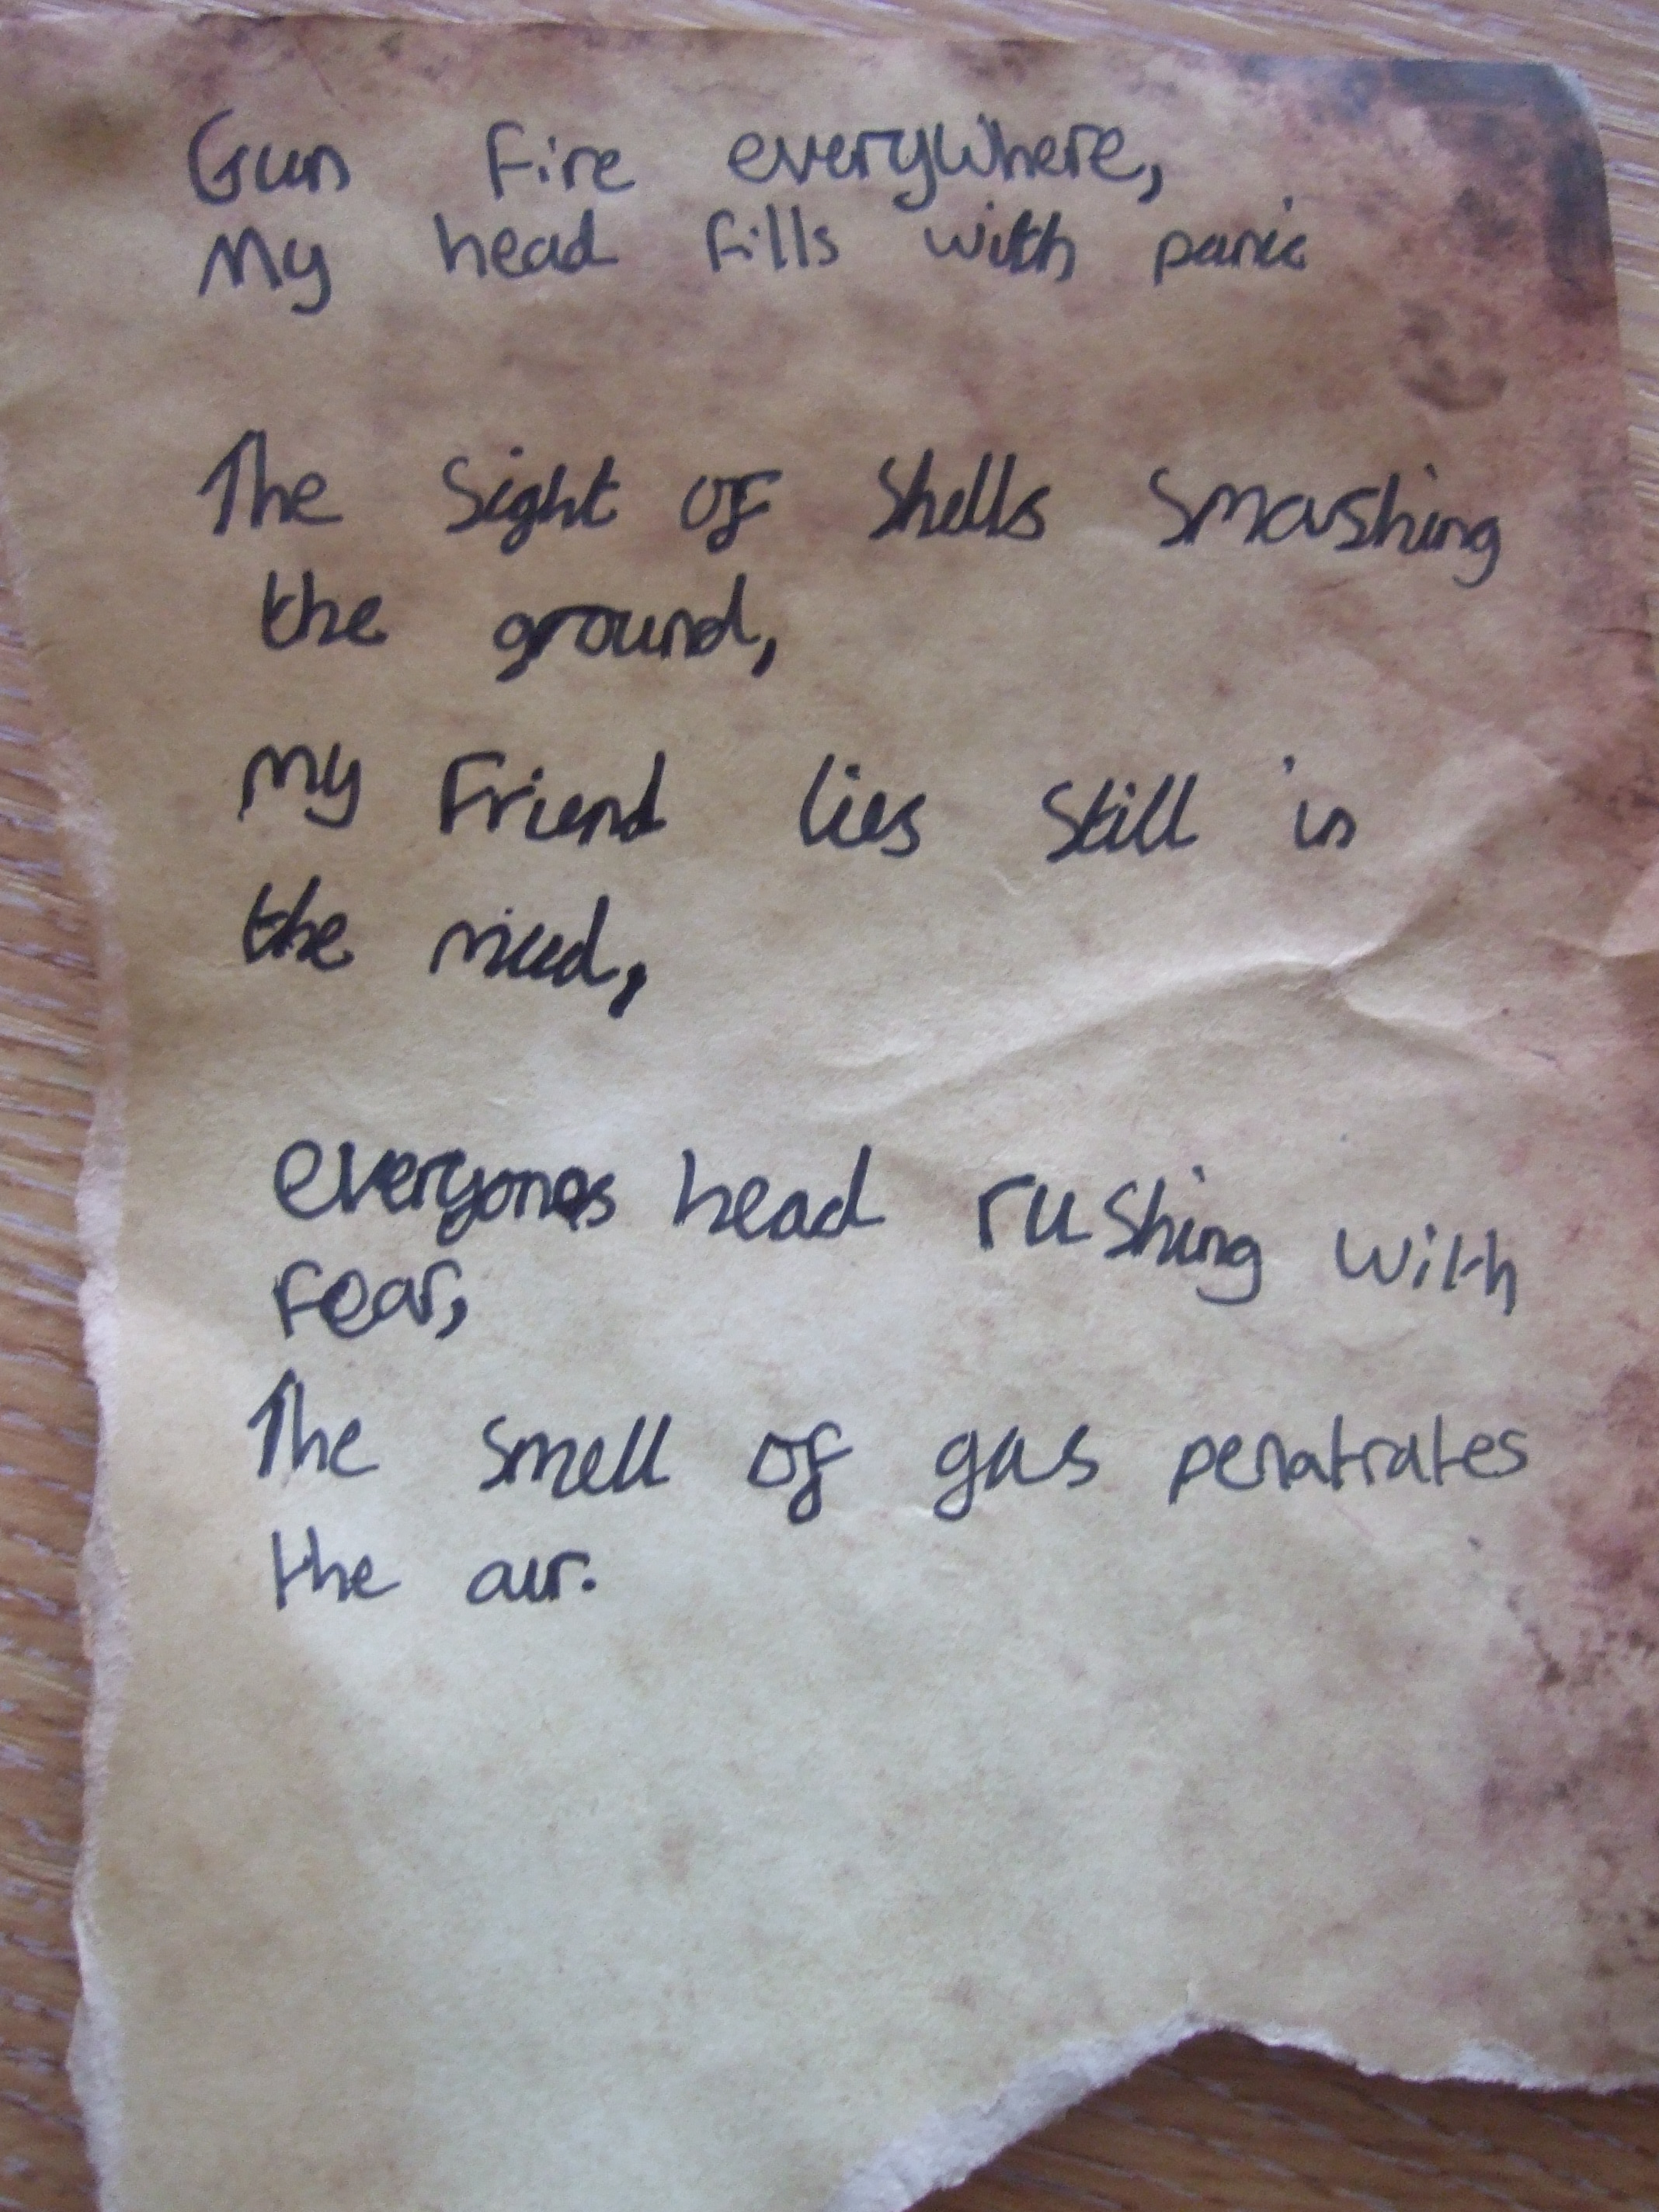 Gun fire everywhere,
My head fills with panic
The sight of shells smashing
the ground,
my friend lies still in
the mud,
everyones head rushing with
fear,
The smell of gas penatrates
the air.